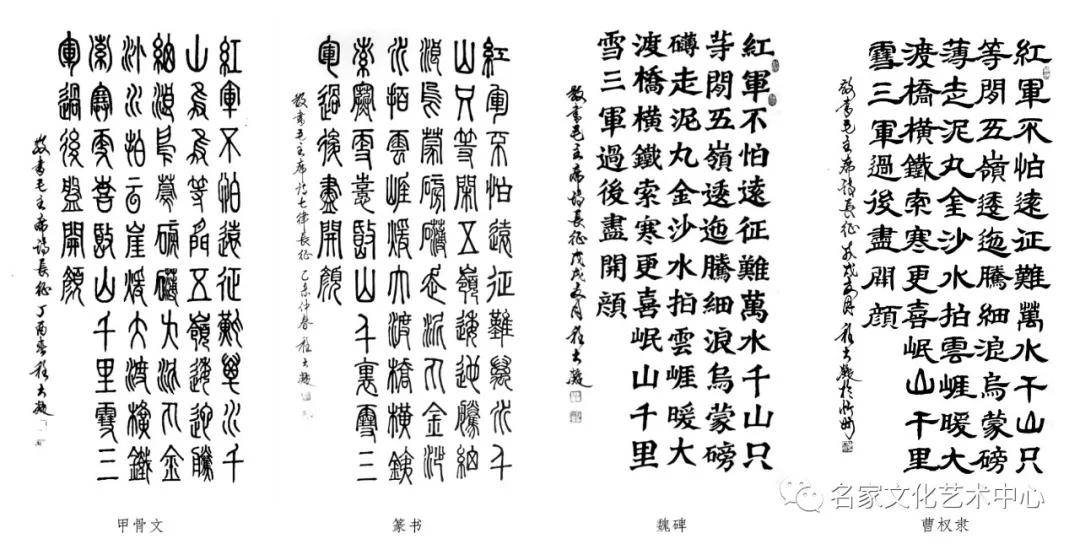 紅軍不怕遠征難萬水千
山只等閒五嶺逶迤騰
細浪烏蒙磅礴走泥丸金
沙水拍雲崖暖大渡橋橫鐵
索寒更喜岷山千里雪三
軍過後盡開顏
敬書毛主席詩長征 丁酉春
甲骨文
紅軍不怕遠征難萬水千
山只等閒五嶺逶迤騰細
浪烏蒙磅礴走泥丸金沙
水拍雲崖暖大渡橋橫鐵
索寒更喜岷山千里雪三
軍過後盡開顏
敬書毛主席詩七律長征 乙亥仲春
篆书
紅軍不怕遠征難萬水千山只
等閒五嶺逶迤騰細浪烏蒙磅
礡走泥丸金沙水拍雲崕暖大
渡橋橫鐵索寒更喜岷山千里
雪三軍過後盡開顔
敬書毛主席詩長征 戊戌五月
魏碑
紅軍不怕遠征難萬水千山只
等閒五嶺逶迤騰細浪烏蒙磅
薄走泥丸金沙水拍雲崕暖大
渡橋橫鐵索寒更喜岷山千里
雪三軍過後盡開顔
敬書毛主席詩長征 戊戌五月
曹权隶
名家文化艺术中心